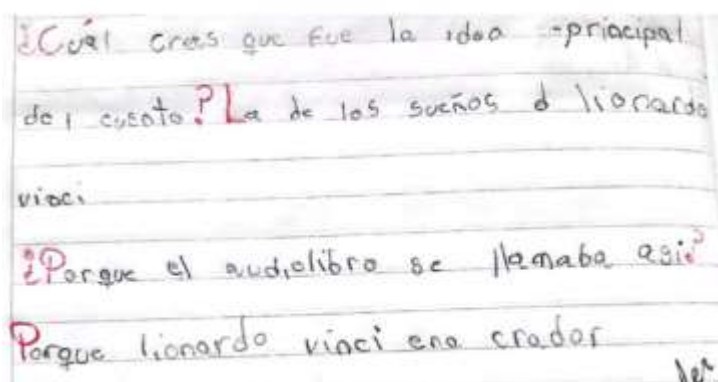 ¿Cuál crees que fue la idea -principal
del cuento? La de los sueños d lionardo
vinci
¿Porque el audiolibro se llamaba asi?
Porque lionardo vinci era crador